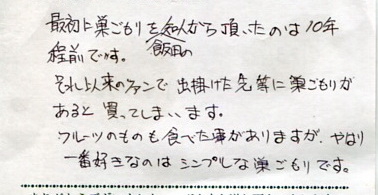 最初に巣ごもりを飯田の知人から頂いたのは10年
程前です。
それ以来のファンで出掛けた先等に巣ごもりが
あると買ってしまいます。
フルーツのものも食べた事がありますが、やはり
一番好きなのはシンプルな巣ごもりです。